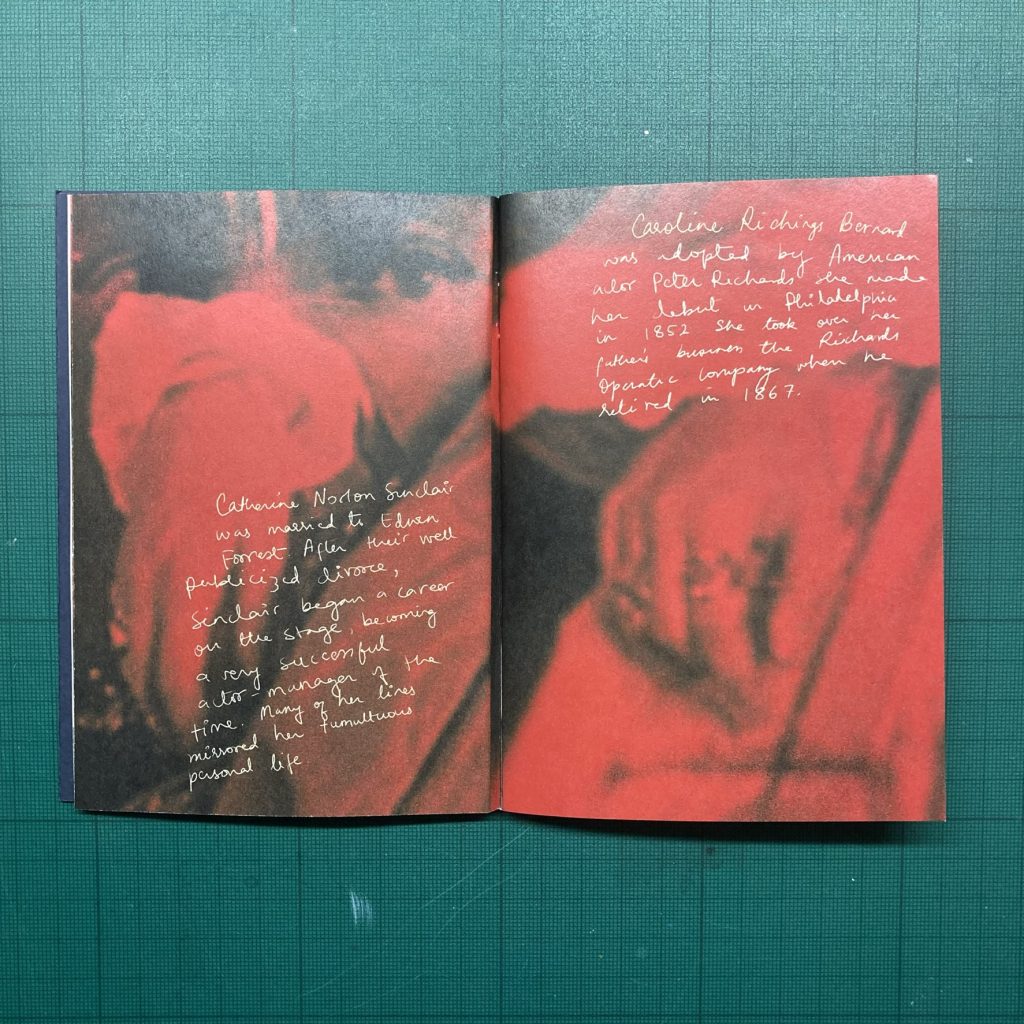 Catherine Norton Sinclair
was married to Edwin
Forrest. After their well
publicized divorce,
Sinclair began a career
on the stage, becoming
a very successful
actor-manager of the
time. Many of her lines
mirrored her tumultuous
personal life
Caroline Richings Bernard
was adopted by American
actor Peter Richards she made
her debut in Philadelphia
in 1852 She took over her
father's business the Richards
Operatic Company when he
retired in 1867.